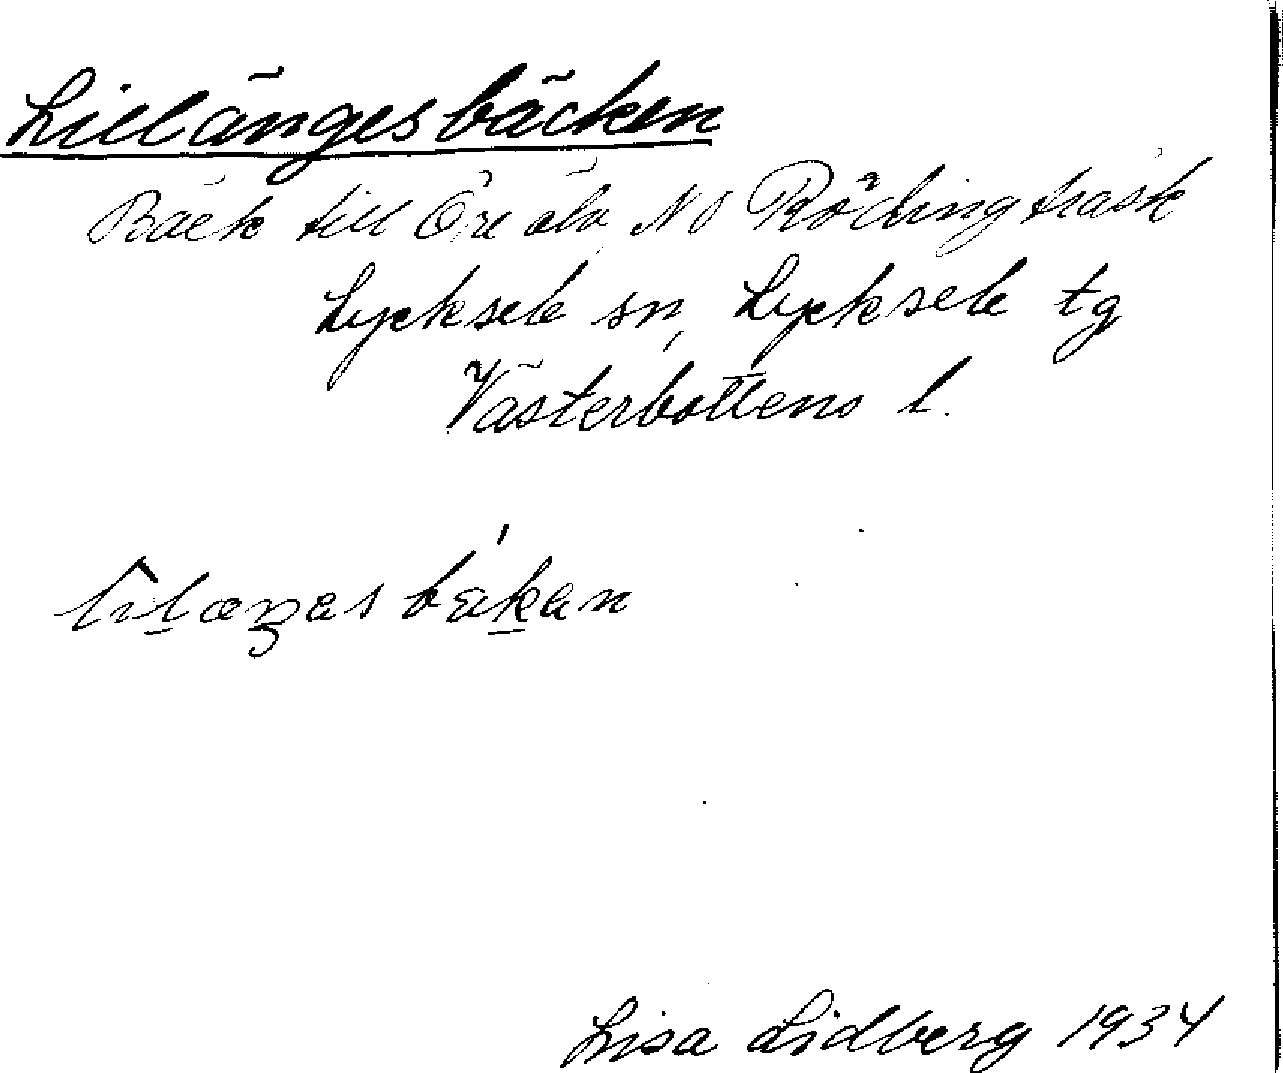 Lillängesbäcken
Bäck till Öre älv, NO Rödingträsk
Lycksele sn, Lycksele tg
Västerbottens l.
Lisa Lidberg 1934